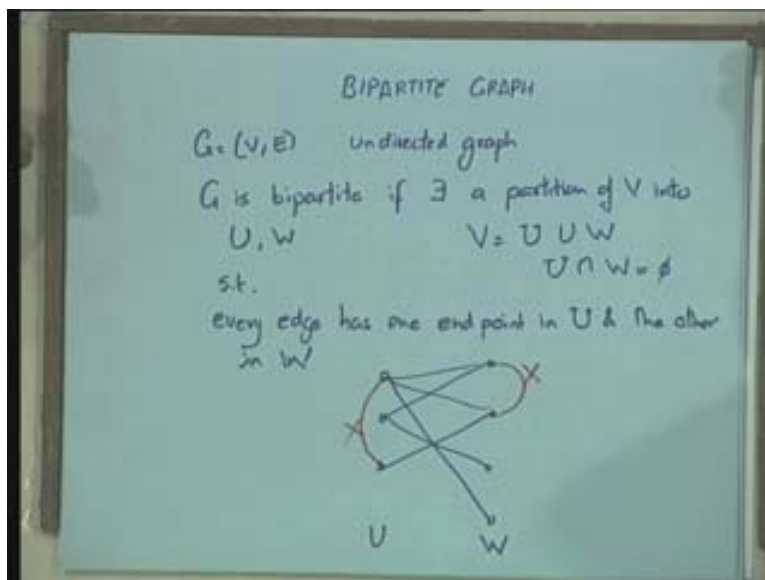 BIPARTITE GRAPH
G = (V, E) undirected graph
G is bipartite if ∃ a partition of V into
U, W V = U ∪ W
U ∩ W = ϕ
s.t.
every edge has one end point in U & the other
in W
X X
U W